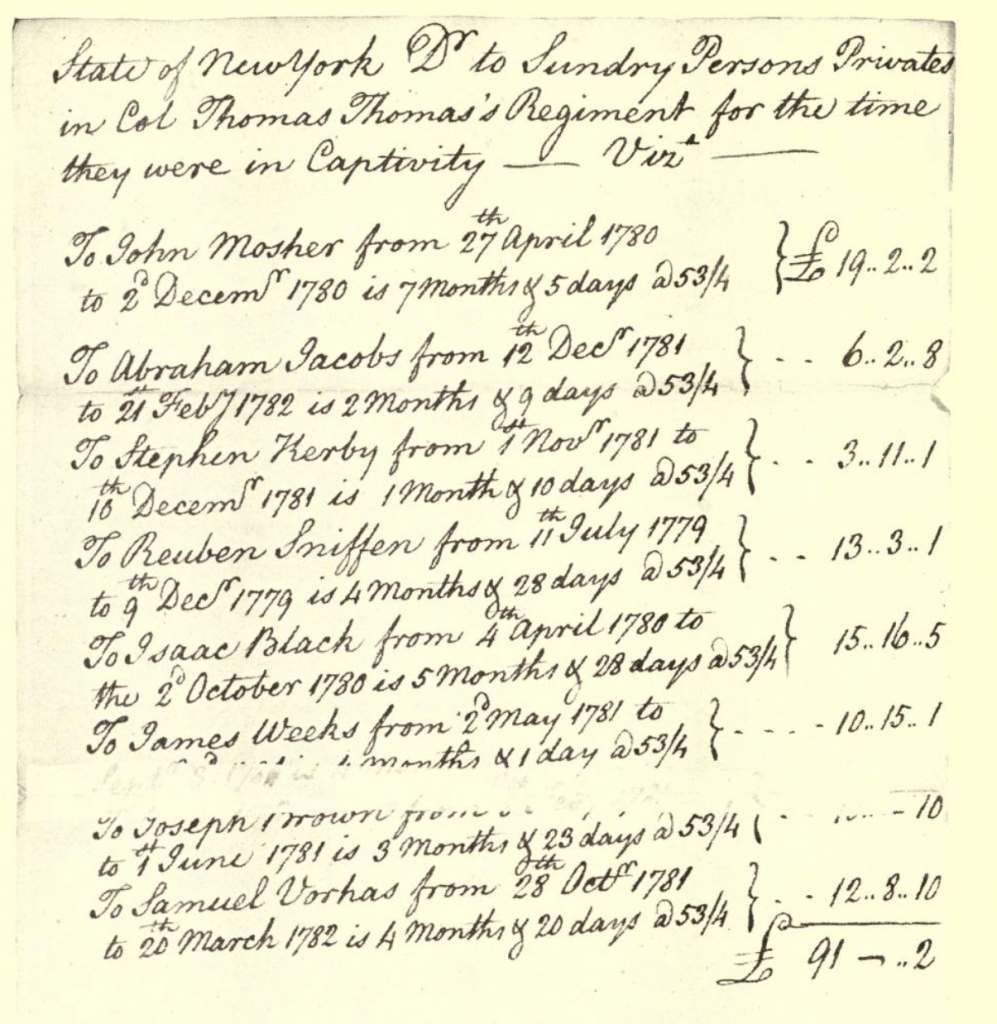 State of New York Dr to Sundry Persons Privates
in Col Thomas Thomas's Regiment for the time
they were in Captivity — Vizt —
To John Mosher from 27th April 1780
to 2d Decemr 1780 is 7 Months & 5 days @ 53/4 } £ 19..2..2
To Abraham Jacobs from 12th Decr 1781
to 21st Feby 1782 is 2 Months & 9 days @ 53/4 } - - - 6..2..8
To Stephen Kerby from 1st Novr 1781 to
10th Decemr 1781 is 1 Month & 10 days @ 53/4 } - - - 3..11..1
To Reuben Sniffen from 11th July 1779
to 9th Decr 1779 is 4 Months & 28 days @ 53/4 } - - - 13..3..1
To Isaac Black from 4th April 1780 to
the 2d October 1780 is 5 Months & 28 days @ 53/4 } 15..16..5
To James Weeks from 2d May 1781 to
months & 1 day @ 53/4 } - - - - 10..15..1
To Joseph Brown from
to 1st June 1781 is 3 Months & 23 days @ 53/4 10
To Samuel Vorhas from 28th Octr 1781
to 20th March 1782 is 4 Months & 20 days @ 53/4 } - - 12..8..10
£ 91 —..2